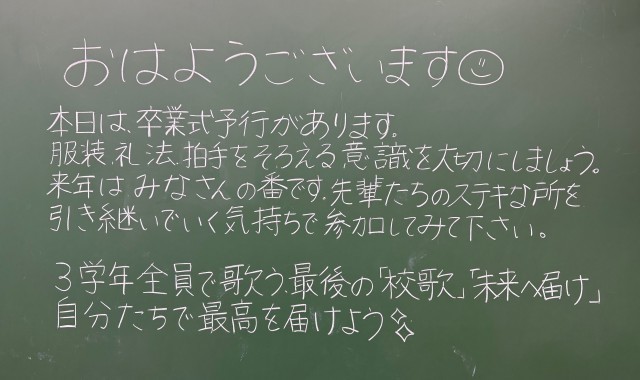 おはようございます☺
本日は、卒業式予行があります。
服装、礼法、拍手をそろえる、意識を大切にしましょう。
来年はみなさんの番です、先輩たちのステキな所を
引き継いでいく気持ちで参加してみて下さい。
3学年全員で歌う、最後の「校歌」「未来へ届け」
自分たちで最高を届けよう✨